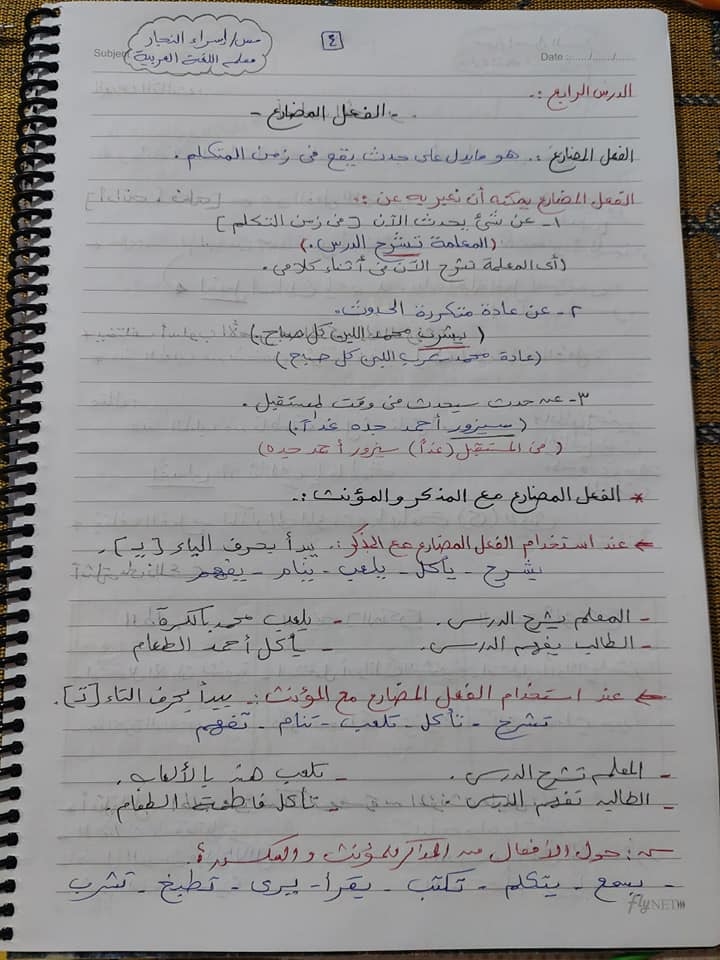 مس/ إسراء النجار
معلمة اللغة العربية
٤
Subject
Date :....../....../......
الدرس الرابع :.
- الفعل المضارع -
الفعل المضارع :. هو ما يدل على حدث يقع فى زمن المتكلم .
الفعل المضارع يمكنه أن نعبر به عن :.
١- عن شئ يحدث الآن [ فى زمن التكلم ]
(المعلمة تشرح الدرس .)
(أى المعلمة تشرح الآن فى أثناء كلامى .
٢- عن عادة متكررة الحدوث .
( يشرب محمد اللبن كل صباح .)
(عادة محمد شرب اللبن كل صباح )
٣- عن حدث سيحدث فى وقت لمستقبل .
( سيزور أحمد جده غداً .)
( فى المستقبل (غداً) سيزور أحمد جده)
* الفعل المضارع مع المذكر والمؤنث :.
← عند استخدام الفعل المضارع مع المذكر :. يبدأ بحرف الياء [يـ] .
يشرح - يأكل - يلعب - ينام - يفهم
- المعلم يشرح الدرس . - يلعب محمد بالكرة .
- الطالب يفهم الدرس . - يأكل أحمد الطعام
← عند استخدام الفعل المضارع مع المؤنث :. يبدأ بحرف التاء [تـ] .
تشرح - تأكل - تلعب - تنام - تفهم
- المعلمة تشرح الدرس . - تلعب هند بالألعاب .
- الطالبة تفهم الدرس . - تأكل فاطمة الطعام .
س: حول الأفعال من المذكر للمؤنث والعكس ؟
- يسمع - يتكلم - تكتب - يقرأ - يرى - تطبخ - تشرب
flyNET